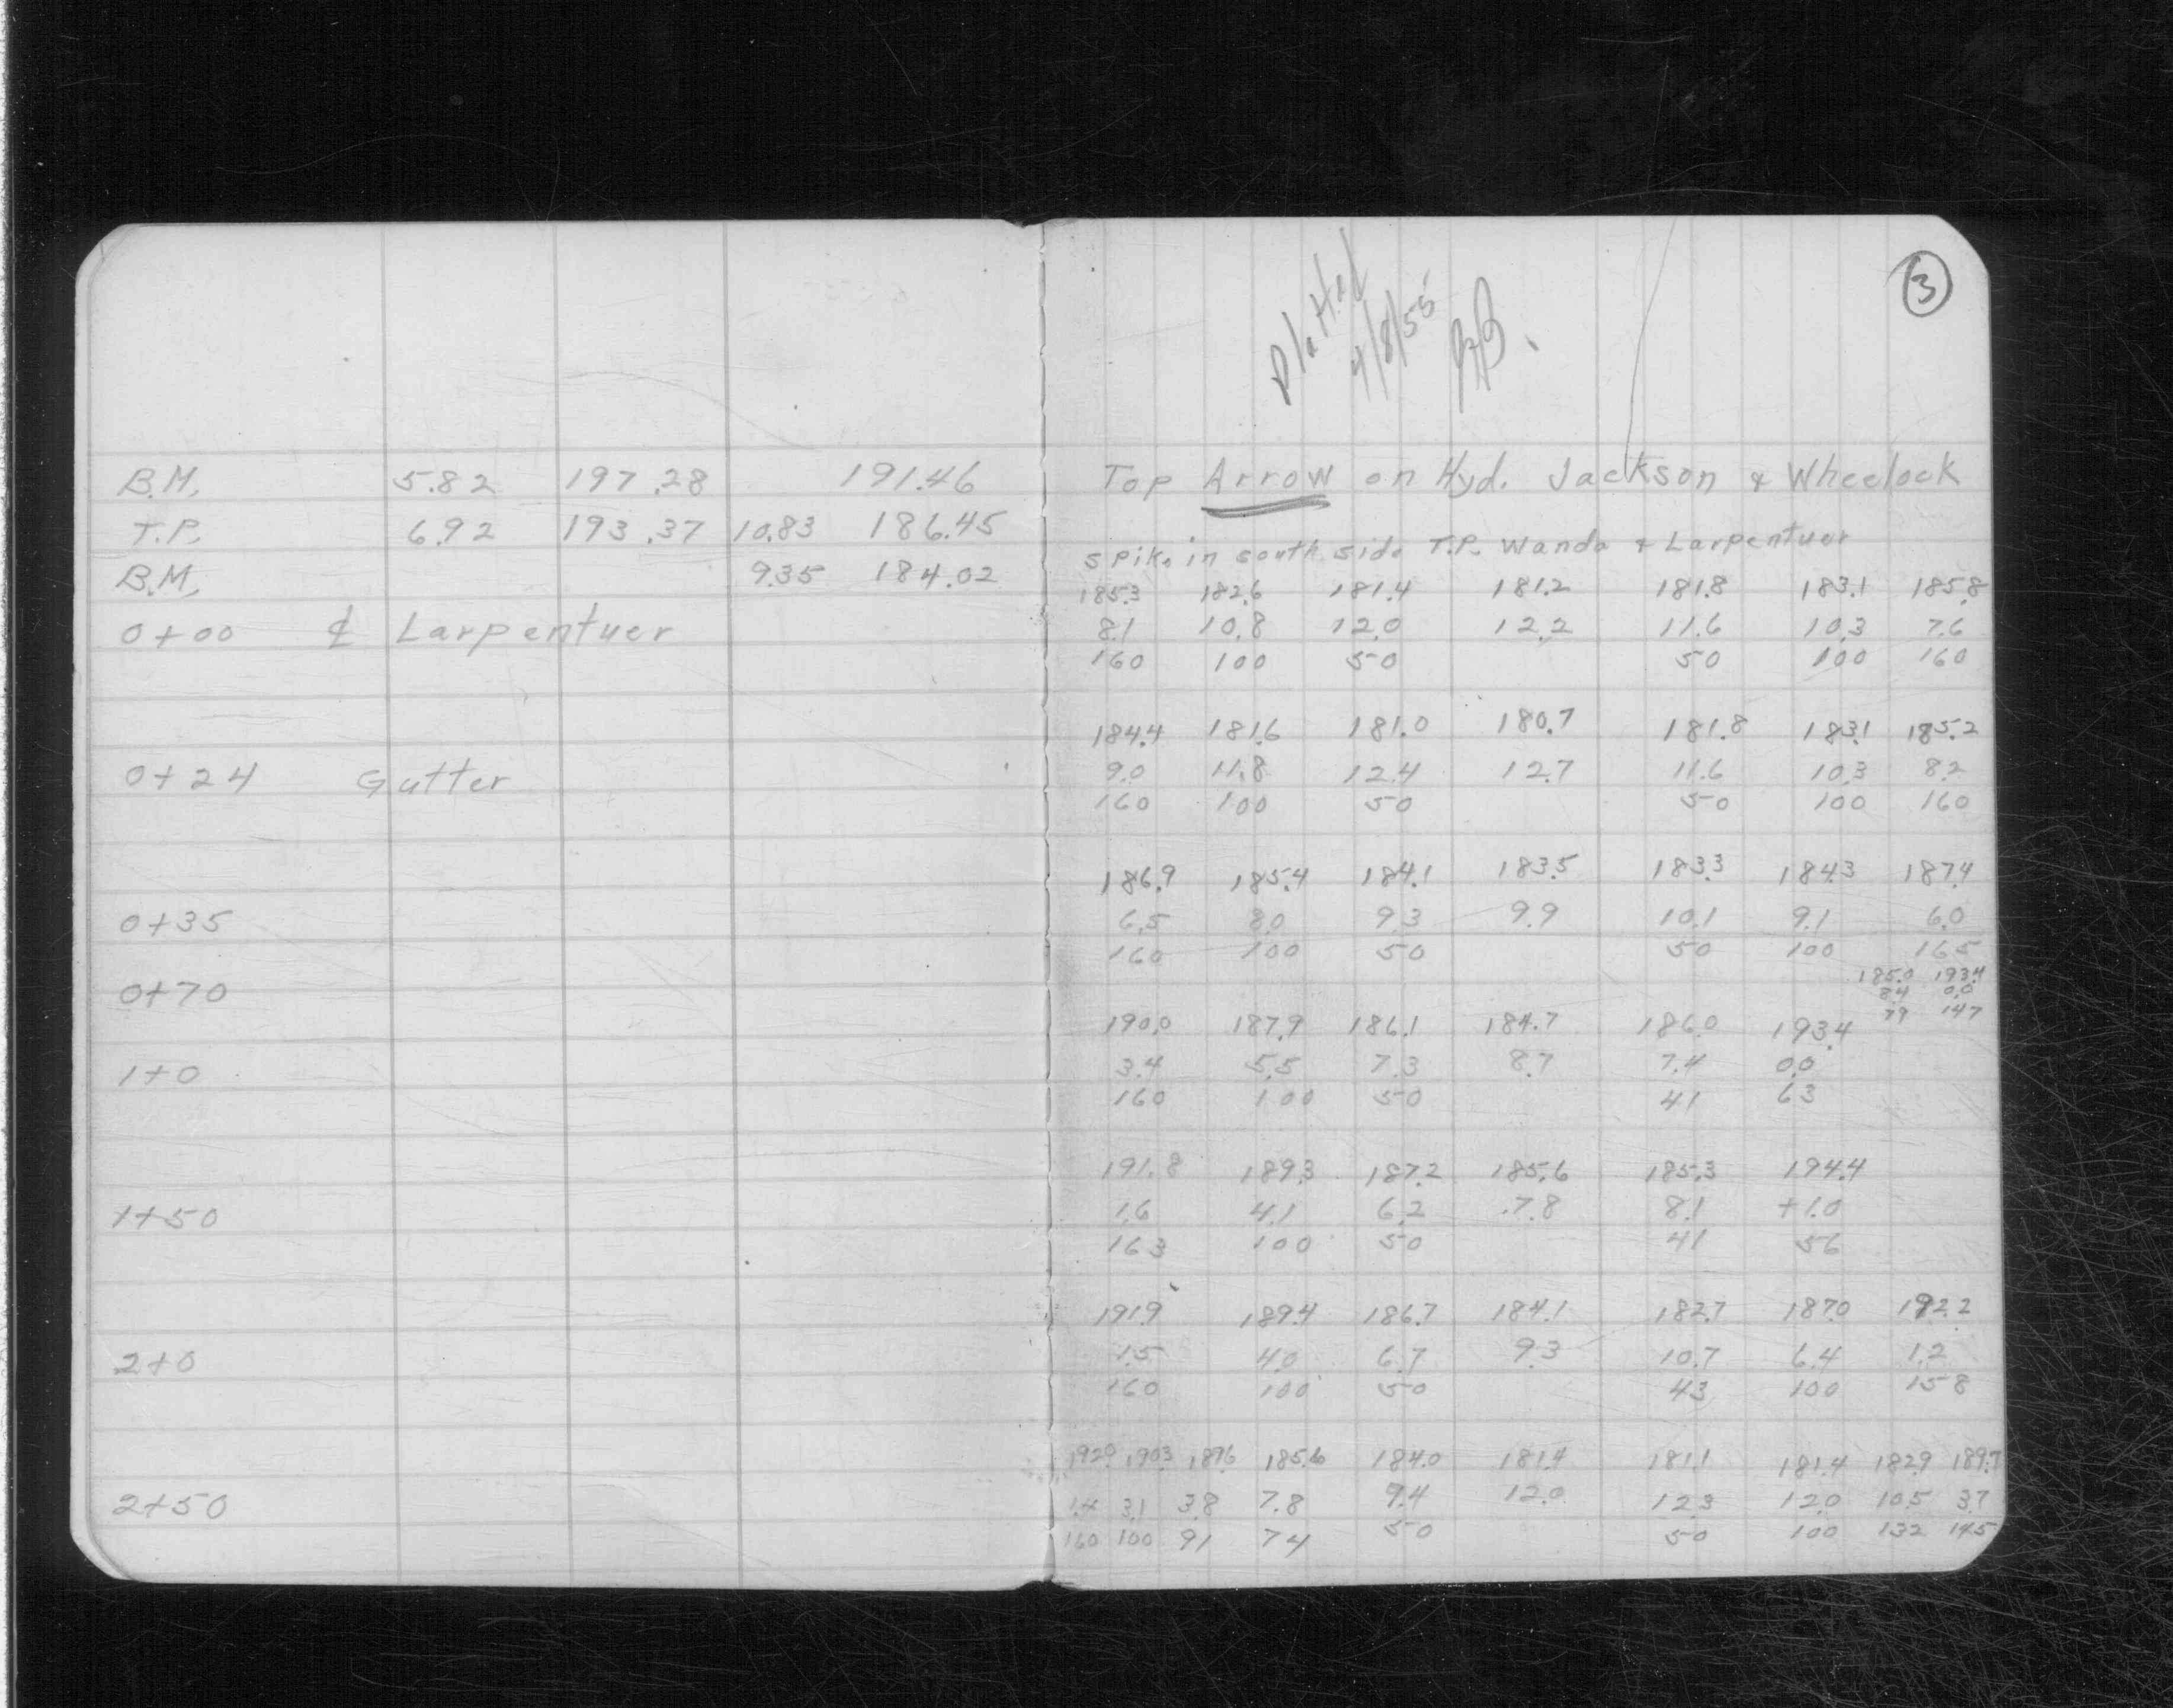 3
Platted
4/8/55
B.M. 5.82 197.28 191.46 Top Arrow on Hyd. Jackson & Wheelock
T.P. 6.92 193.37 10.83 186.45 spike in south side T.P. Wanda & Larpentuer
B.M. 9.35 184.02
185.3 182.6 181.4 181.2 181.8 183.1 185.8
0+00 ℄ Larpentuer 8.1 10.8 12.0 12.2 11.6 10.3 7.6
160 100 50 50 100 160
184.4 181.6 181.0 180.7 181.8 183.1 185.2
0+24 Gutter 9.0 11.8 12.4 12.7 11.6 10.3 8.2
160 100 50 50 100 160
186.9 185.4 184.1 183.5 183.3 184.3 187.4
0+35 6.5 8.0 9.3 9.9 10.1 9.1 6.0
160 100 50 50 100 165
185.0 193.4
0+70 8.4 0.0
79 147
190.0 187.9 186.1 184.7 186.0 193.4
1+0 3.4 5.5 7.3 8.7 7.4 0.0
160 100 50 41 63
191.8 189.3 187.2 185.6 185.3 194.4
1+50 1.6 4.1 6.2 7.8 8.1 +1.0
163 100 50 41 56
191.9 189.4 186.7 184.1 182.7 187.0 192.2
2+0 1.5 4.0 6.7 9.3 10.7 6.4 1.2
160 100 50 43 100 158
192.0 190.3 189.6 185.6 184.0 181.4 181.1 181.4 182.9 189.7
2+50 1.4 3.1 3.8 7.8 9.4 12.0 12.3 12.0 10.5 3.7
160 100 91 74 50 50 100 132 145